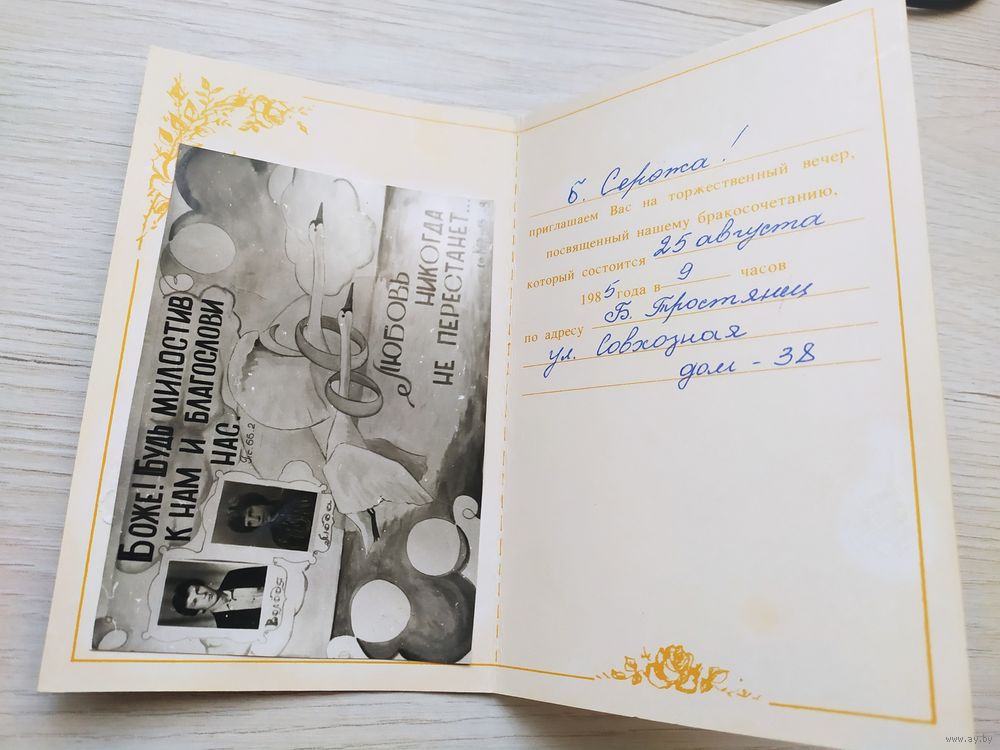 БОЖЕ! БУДЬ МИЛОСТИВ
К НАМ И БЛАГОСЛОВИ
НАС.
Пс 66.2
ЛЮБОВЬ
НИКОГДА
НЕ ПЕРЕСТАНЕТ...
Люба
Володя
б. Сережа!
приглашаем Вас на торжественный вечер,
посвященный нашему бракосочетанию,
который состоится 25 августа
1985 года в 9 часов
по адресу Б. Тростянец
ул. Совхозная
дом - 38
www.ay.by